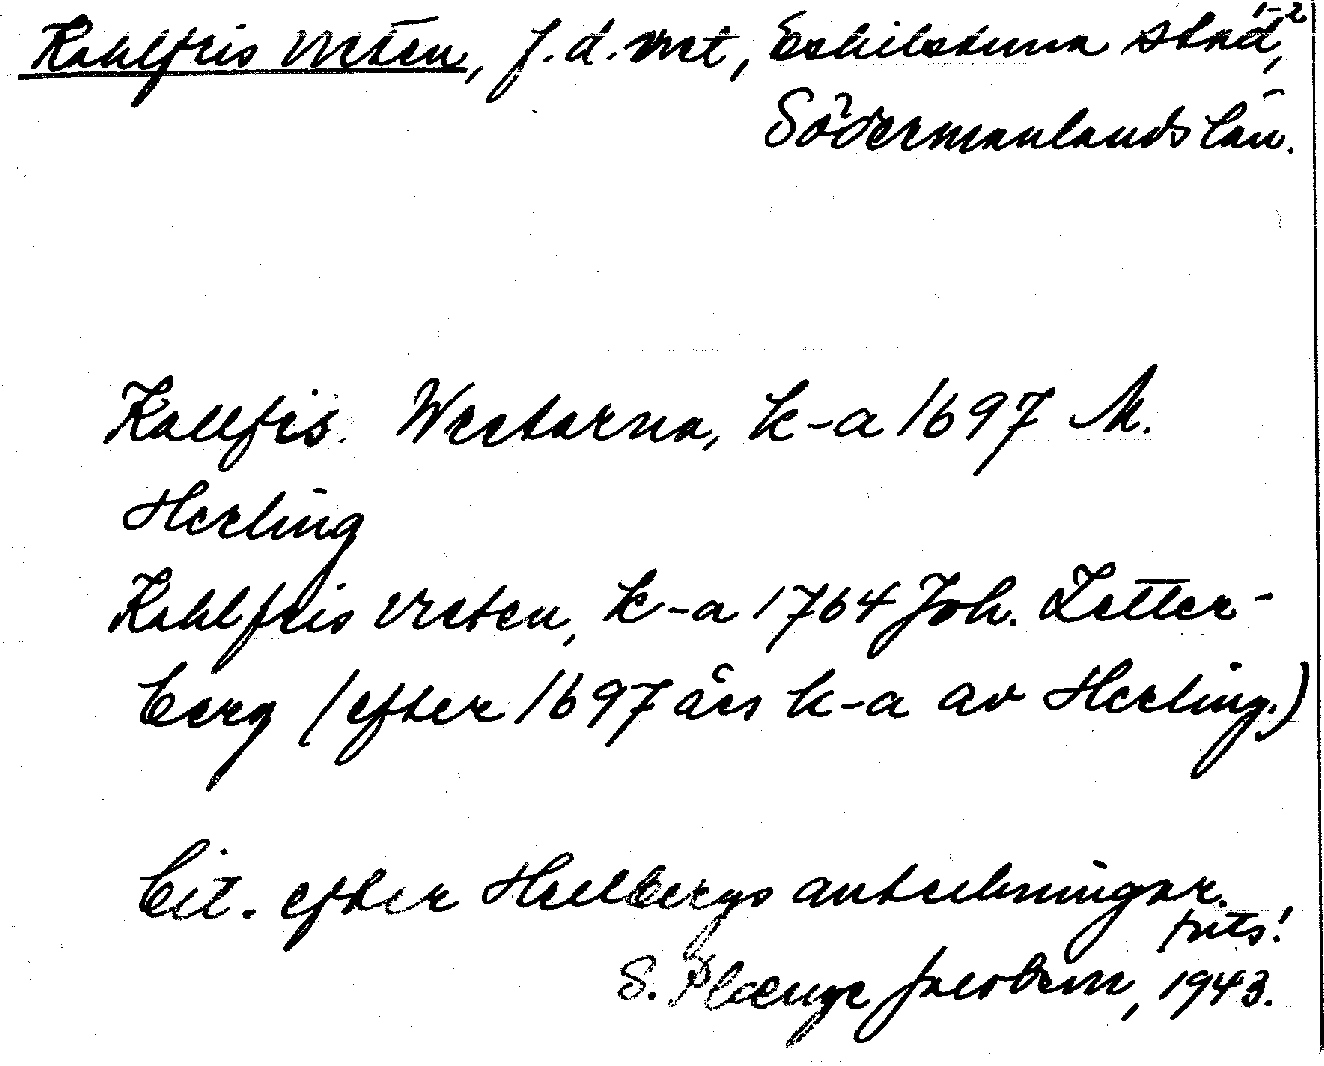 Kahlfris vreten, f.d. vret, Eskilstuna stad, 1-2
Södermanlands län.
Kallfris. Wretarna, k-a 1697 M.
Herling
Kahlfris vreten, k-a 1764 Joh. Zetter-
berg (efter 1697 års k-a av Herling.)
Cit. efter Hellbergs anteckningar.
forts!
S. Plænge Jacobson, 1943.